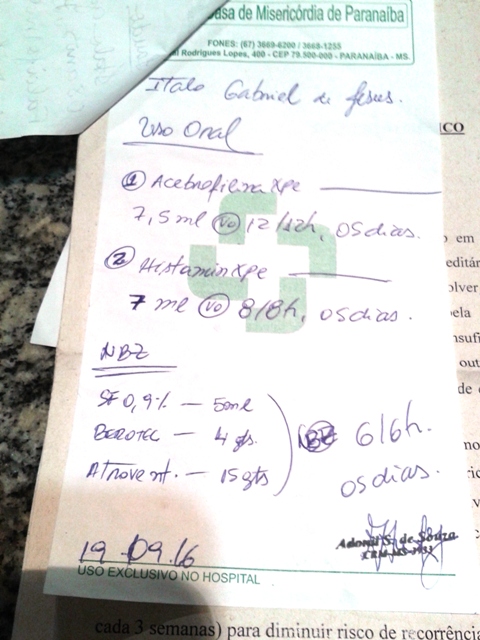 asa de Misericórdia de Paranaíba
FONES: (67) 3669-6200 / 3669-1255
al Rodrigues Lopes, 400 - CEP 79.500-000 - PARANAÍBA - MS.
Italo Gabriel de Jesus.
Uso Oral
① Acebrofilina Xpe
7,5ml (VO) 12/12h, 05 dias.
② Histamin Xpe
7 ml (VO) 8/8h, 05 dias.
NBZ
SF 0,9% — 5ml
BEROTEC — 4 gts.
Atrovent. — 15 gts
NBZ 6/6h.
05 dias.
Adonil S. de Souza
19-09.16
USO EXCLUSIVO NO HOSPITAL
ICO
em
editár
olver
ela
nsufi
out
de
no
cada 3 semanas) para diminuir risco de recorrência